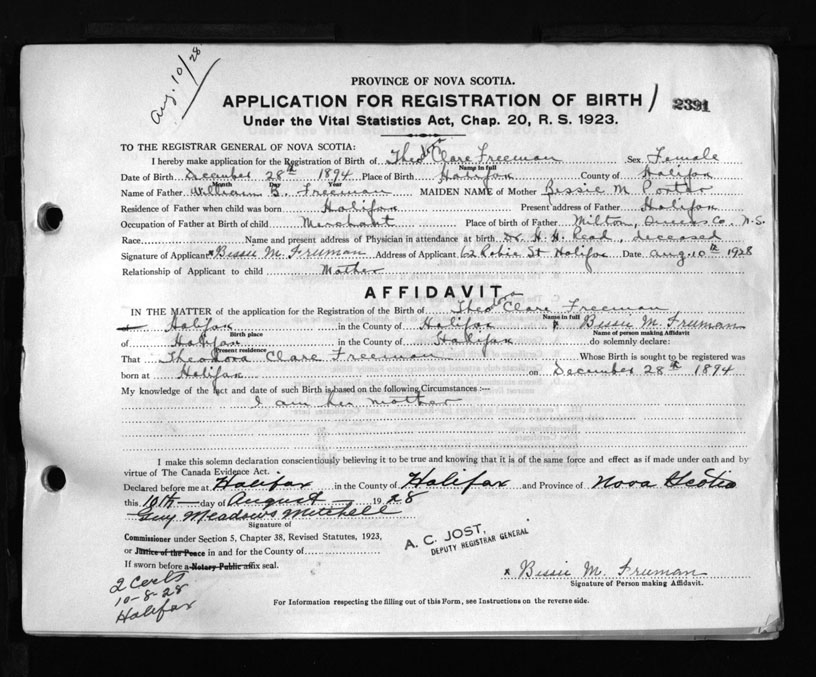 Aug. 10/28
PROVINCE OF NOVA SCOTIA.
APPLICATION FOR REGISTRATION OF BIRTH / 2391
Under the Vital Statistics Act, Chap. 20, R. S. 1923.
TO THE REGISTRAR GENERAL OF NOVA SCOTIA:
I hereby make application for the Registration of Birth of Theodora Clare Freeman Sex Female
Name in full
Date of Birth December 28th 1894 Place of Birth Halifax County of Halifax
Month Day Year
Name of Father William B. Freeman MAIDEN NAME of Mother Bessie M Porter
Residence of Father when child was born Halifax Present address of Father Halifax
Occupation of Father at Birth of child Merchant Place of birth of Father Milton, Queens Co. N.S.
Race Name and present address of Physician in attendance at birth Dr. H. H. Read, deceased
Signature of Applicant x Bessie M. Freeman Address of Applicant 62 Robie St Halifax Date Aug. 10th 1928
Relationship of Applicant to child Mother
AFFIDAVIT
IN THE MATTER of the application for the Registration of Birth of Theodora Clare Freeman
Name in full
Halifax in the County of Halifax Bessie M. Freeman
Birth place Name of person making Affidavit
of Halifax in the County of Halifax do solemnly declare:
Present residence
That Theodora Clare Freeman Whose Birth is sought to be registered was
born at Halifax on December 28th 1894
My knowledge of the fact and date of such Birth is based on the following Circumstances :—
I am her mother
I make this solemn declaration conscientiously believing it to be true and knowing that it is of the same force and effect as if made under oath and by
virtue of The Canada Evidence Act.
Declared before me at Halifax in the County of Halifax and Province of Nova Scotia
this 10th day of August 1928
Guy Meadows Mitchell
Signature of
Commissioner under Section 5, Chapter 38, Revised Statutes, 1923,
or Justice of the Peace in and for the County of
If sworn before a Notary Public affix seal.
A. C. JOST,
DEPUTY REGISTRAR GENERAL
x Bessie M. Freeman
Signature of Person making Affidavit.
2 Certs
10-8-28
Halifax
For Information respecting the filling out of this Form, see Instructions on the reverse side.